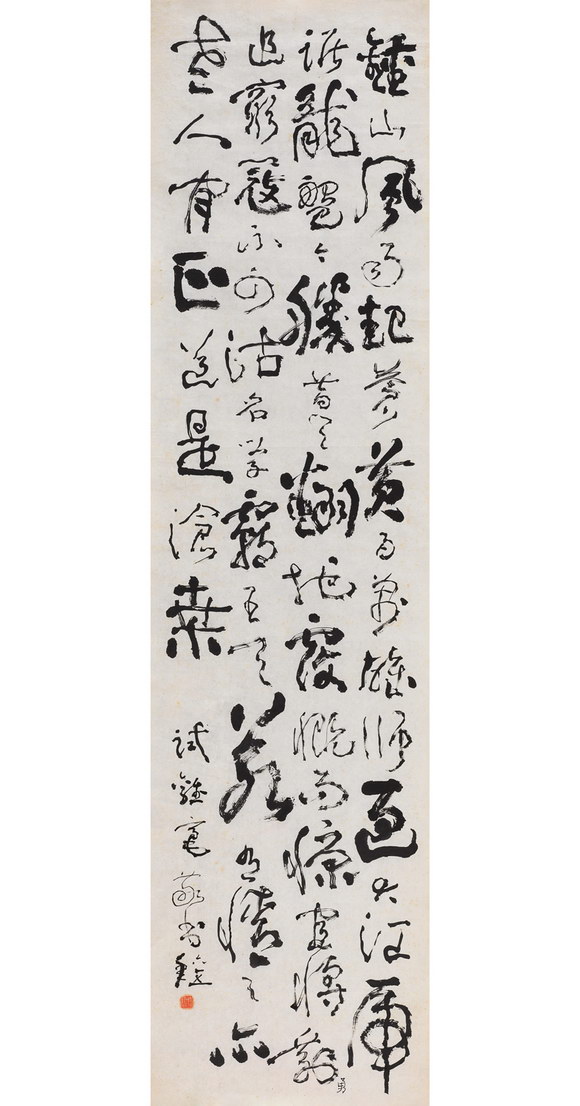 鍾山風雨起蒼黃百萬雄師過大江虎
踞龍盤今勝昔天翻地覆慨而慷宜將剩勇
追窮寇不可沽名學霸王天若有情天亦
老人間正道是滄桑
試雞毫